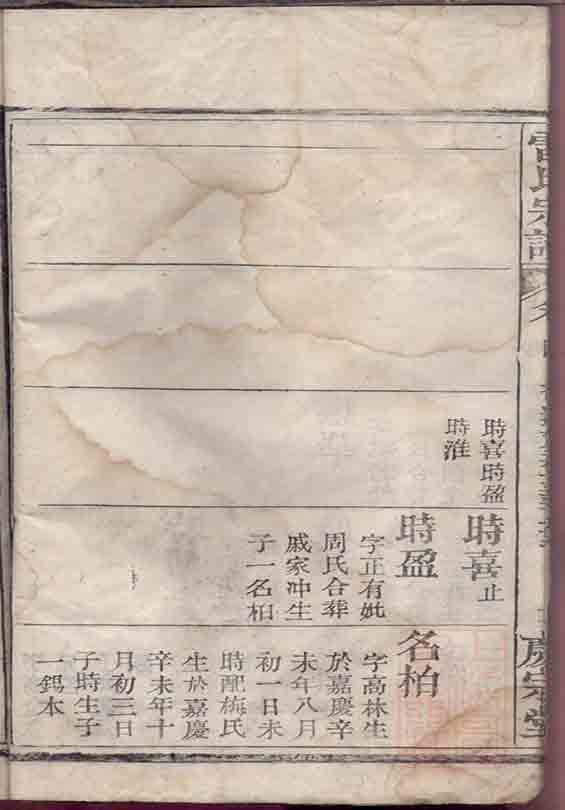 雷氏宗譜
時喜時盈
時淮
時喜止
時盈
字正有妣
周氏合葬
戚家冲生
子一名柏
名柏
字高林生
於嘉慶辛
未年八月
初一日未
時配梅氏
生於嘉慶
辛未年十
月初三日
子時生子
一錫本